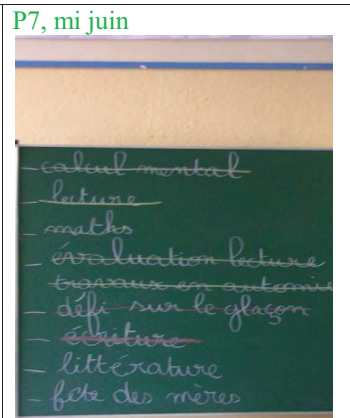 P7, mi juin
- calcul mental
- lecture
- maths
- évaluation lecture
travaux en autonomie
- défi sur le glaçon
- écriture
- littérature
- fête des mères